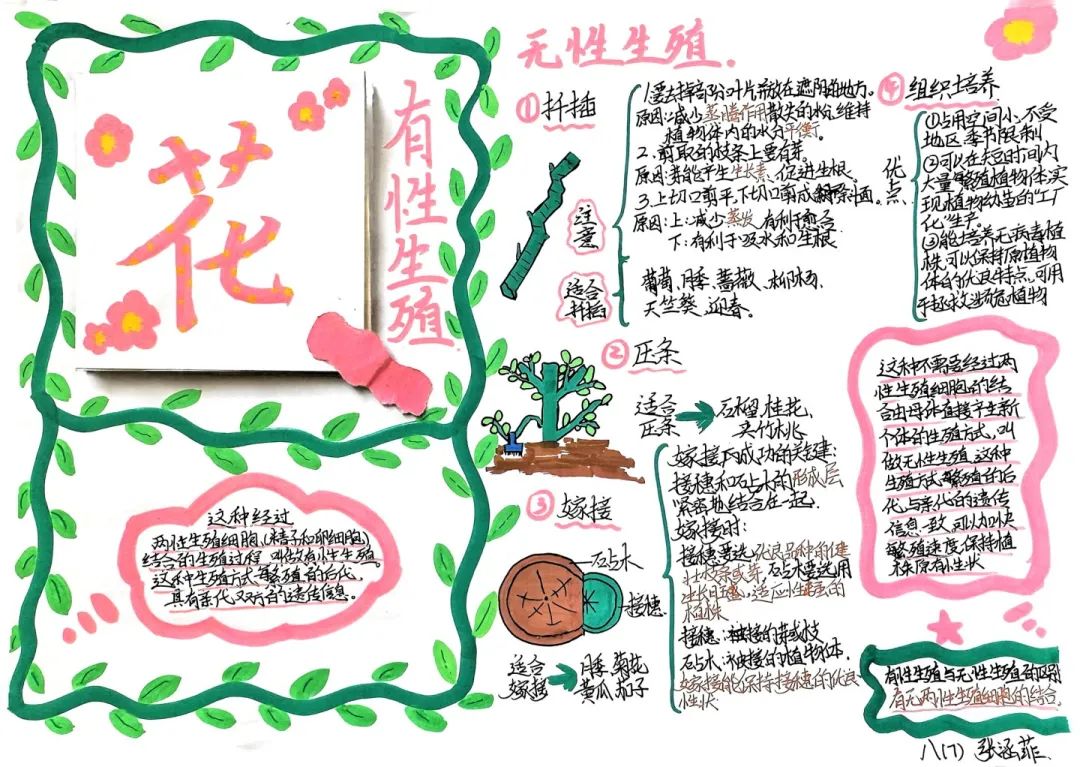 花
有性生殖
这种经过
两性生殖细胞(精子和卵细胞)
结合的生殖过程 叫做有性生殖
这种生殖方式繁殖的后代,
具有亲代双方的遗传信息。
无性生殖.
①扦插
1.要去掉部分叶片并放在遮阴的地方。
原因:减少蒸腾作用散失的水分,维持
植物体内的水分平衡.
2.剪取的枝条上要有芽.
原因:芽能产生生长素、促进生根.
3.上切口剪平,下切口剪成斜面。
原因:上:减少蒸发,有利于愈合
下:有利于吸水和生根
注意
适合
扦插
葡萄、月季、蔷薇、柳杨、
天竺葵、迎春.
②压条
适合
压条
石榴.桂花、
夹竹桃
③嫁接
砧木
接穗
适合
嫁接
月季.菊花
黄瓜.茄子
嫁接成功的关键:
接穗和砧木的形成层
紧密地结合在一起.
嫁接时:
接穗要选优良品种的健
壮枝条或芽,砧木要选用
生长旺盛,适应性强的
植株
接穗:被接的芽或枝
砧木:被接的植物体.
嫁接能保持接穗的优良
性状
④组织培养
优点
①占用空间小、不受
地区、季节限制
②可以在短时间内
大量繁殖植物体,实
现植物幼苗的"工厂
化"生产
③能培养无病毒植
株,可以保持原植物
体的优良特点,可用
于拯救濒危植物
这种不需要经过两
性生殖细胞的结
合由母体直接产生新
个体的生殖方式,叫
做无性生殖.这种
生殖方式繁殖的后
代,与亲代的遗传
信息一致,可以加快
繁殖速度,保持植
株原有性状
有性生殖与无性生殖的区别
有无两性生殖细胞的结合.
八(7) 张涵菲.